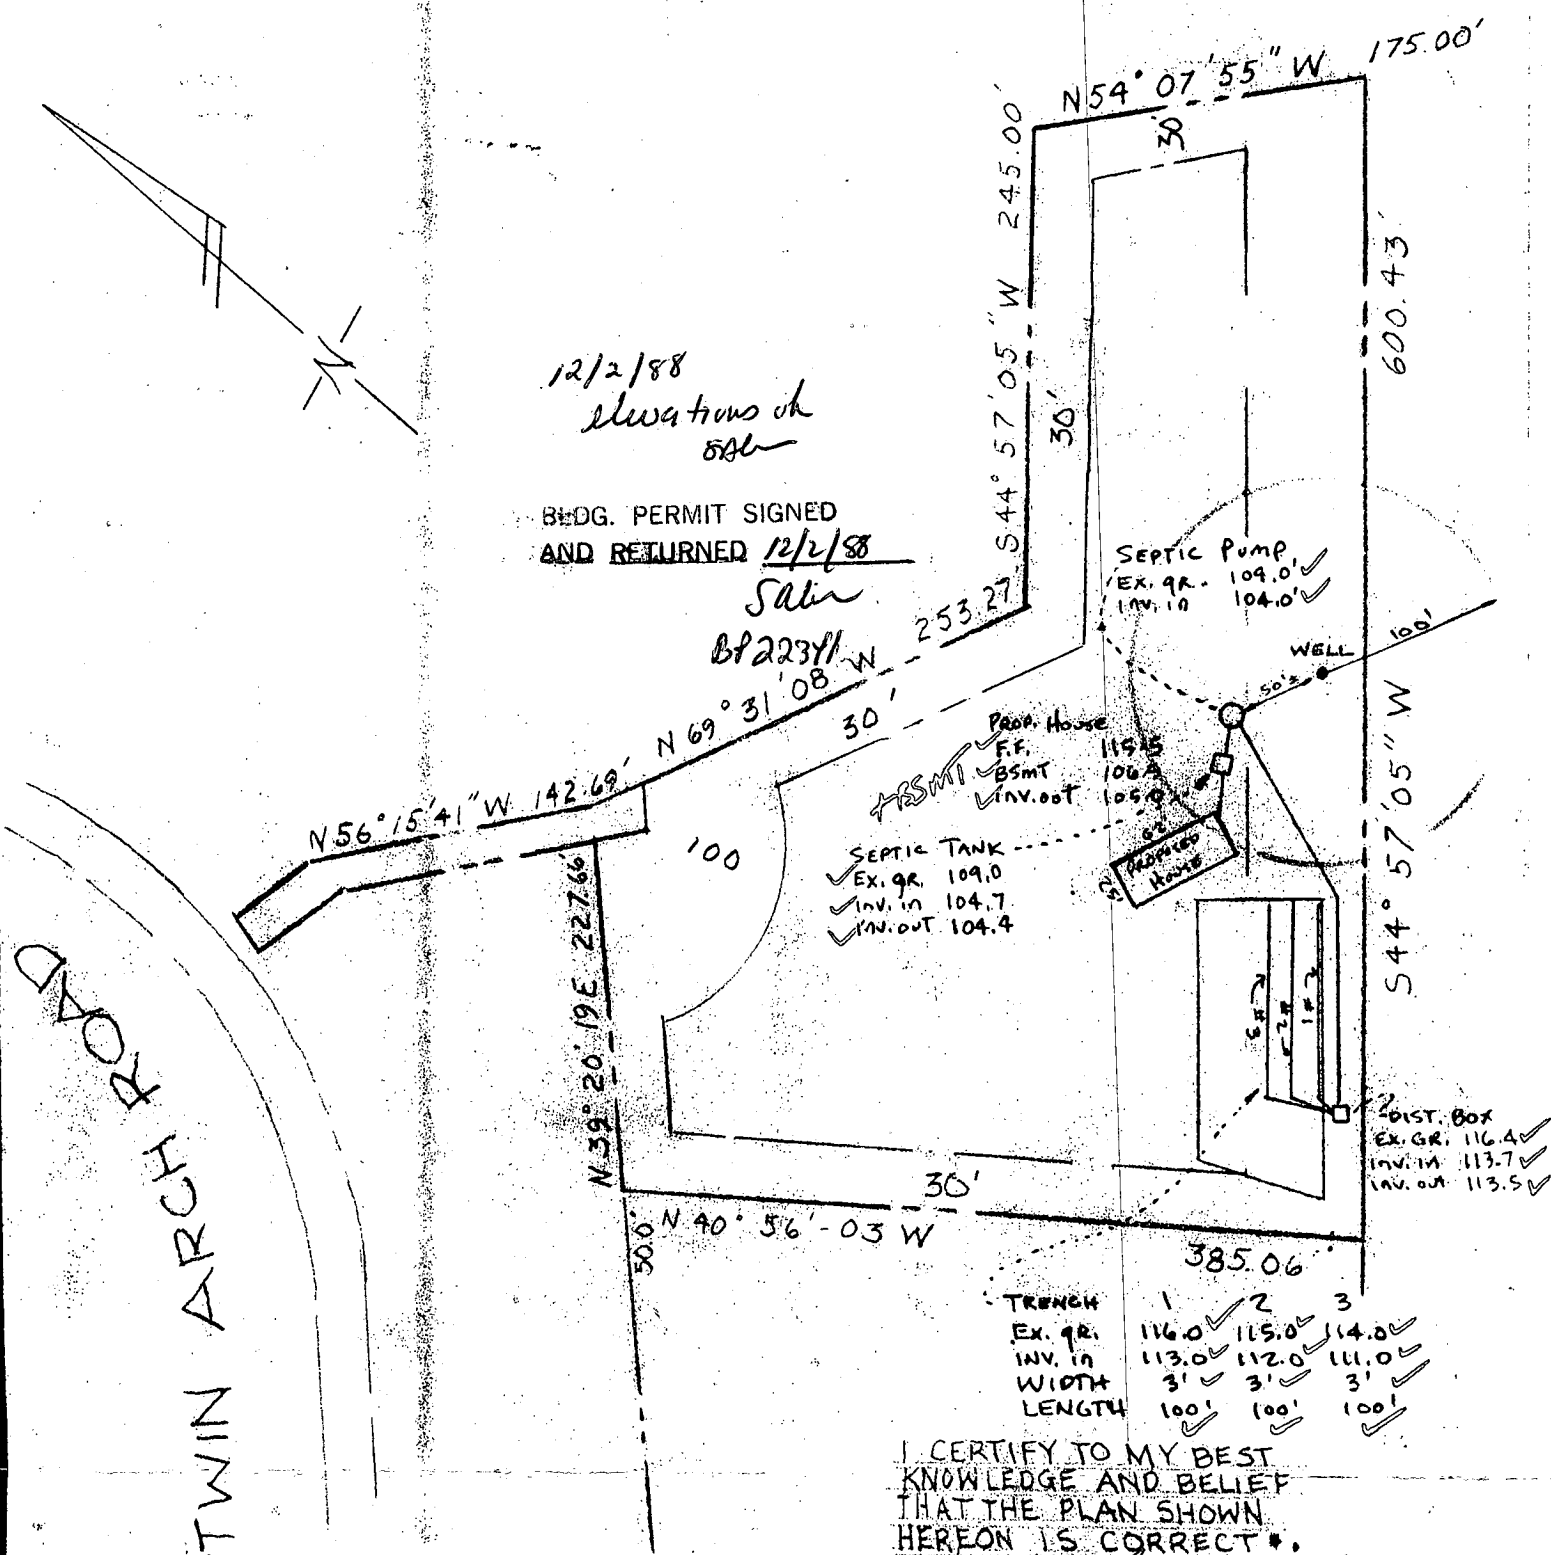 N54° 07' 55" W 175.00'
30
S44° 57' 05" W 245.00'
30'
600.43'
S44° 57' 05" W
N
12/2/88
elevations ok
BLDG. PERMIT SIGNED
AND RETURNED 12/2/88
N 69° 31' 08 W 253.27
30'
N56° 15' 41" W 142.69'
N 39° 20' 19 E 227.66'
100
SEPTIC PUMP
EX. gR. 109.0'
inv. in 104.0'
WELL
100'
50'±
PROP. House
F.F. 115.5
BSmT
inv. out
+BSMT
SEPTIC TANK
EX. gR. 109.0
inv. in 104.7
inv. out 104.4
PROPOSED
House
#3
#2
#1
DIST. BOX
EX. GR. 116.4
inv. in 113.7
inv. out 113.5
30'
N 40° 56'-03 W
385.06
50.0'
TRENCH 1 2 3
Ex. gR. 116.0 115.0 114.0
INV. in 113.0 112.0 111.0
WIDTH 3' 3' 3'
LENGTH 100' 100' 100'
I CERTIFY TO MY BEST
KNOWLEDGE AND BELIEF
THAT THE PLAN SHOWN
HEREON IS CORRECT.
TWIN ARCH ROAD